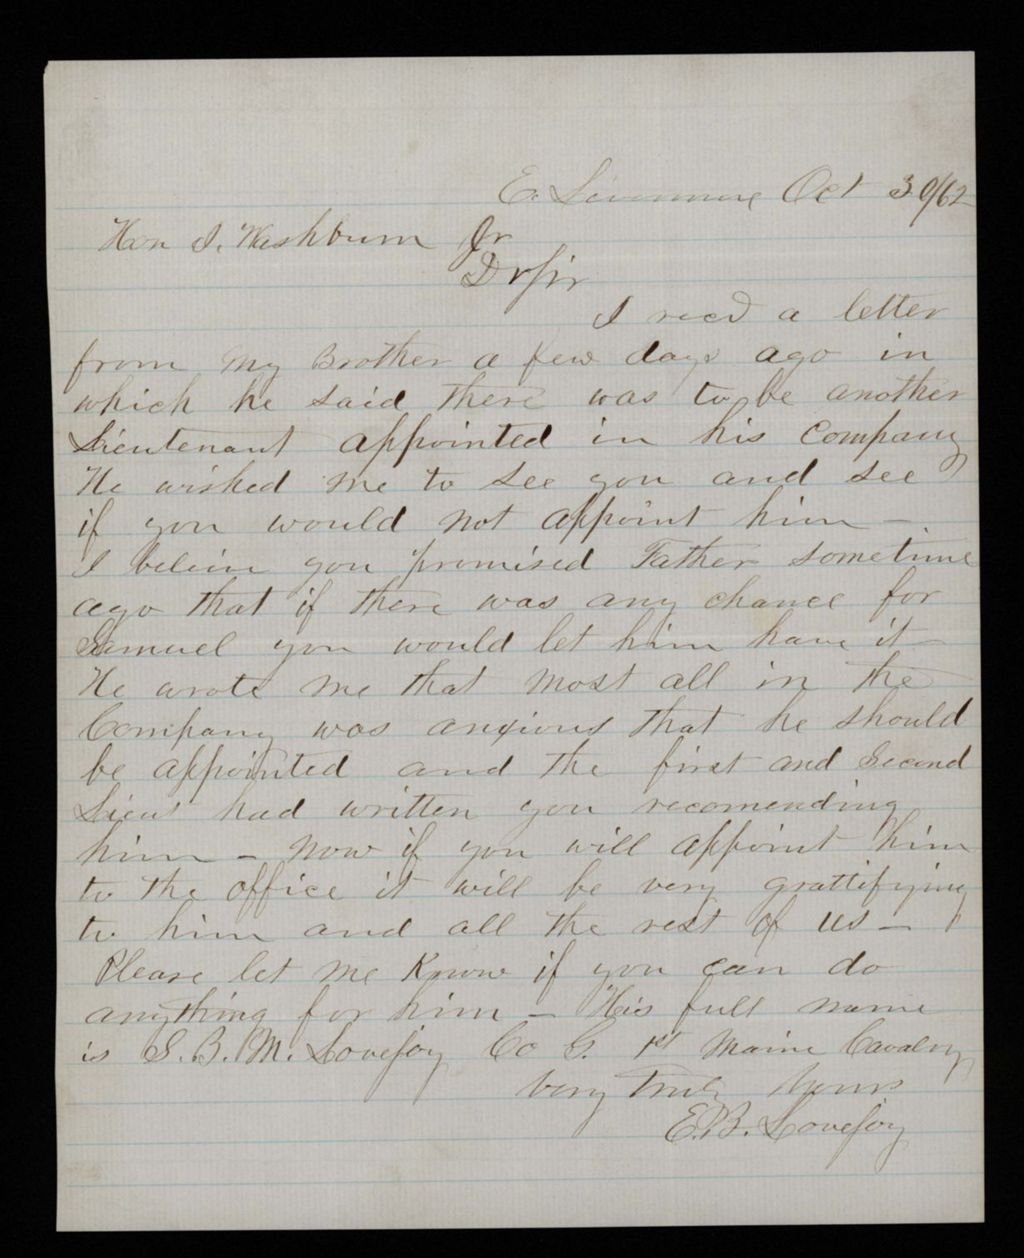 E. Livermore Oct 30/62
Hon I. Washburn Jr
Dr Sir
I recd a letter
from my Brother a few days ago in
which he said there was to be another
Lieutenant appointed in his Company
He wished me to see you and see
if you would not appoint him -
I believe you promised Father sometime
ago that if there was any chance for
Samuel you would let him have it
He wrote me that most all in the
Company was anxious that he should
be appointed and the first and Second
Lieut had written you recomending
him - now if you will appoint him
to the office it will be very grattifying
to him and all the rest of us -
Please let me Know if you can do
anything for him - His full name
is S. B. M. Lovejoy Co G. 1st Maine Cavalry
Very Truly Yours
E. B. Lovejoy